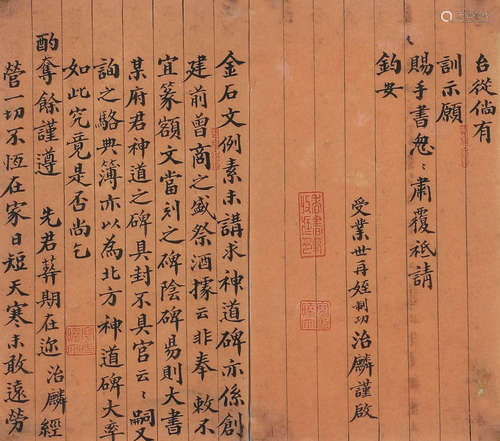 金石文例素未講求神道碑亦係創
建前曾商之盛祭酒據云非奉敕不
宜篆額文當刻之碑陰碑昜則大書
某府君神道之碑具封不具官云云嗣又
詢之駱典簿亦以為北方神道碑大率
如此究竟是否尚乞
酌奪餘謹遵 先君葬期在邇治麟經
營一切不恆在家日短天寒未敢遠勞
台從倘有
訓示願
賜手書怱〻肅覆祗請
鈞安
受業世再姪制功治麟謹啟